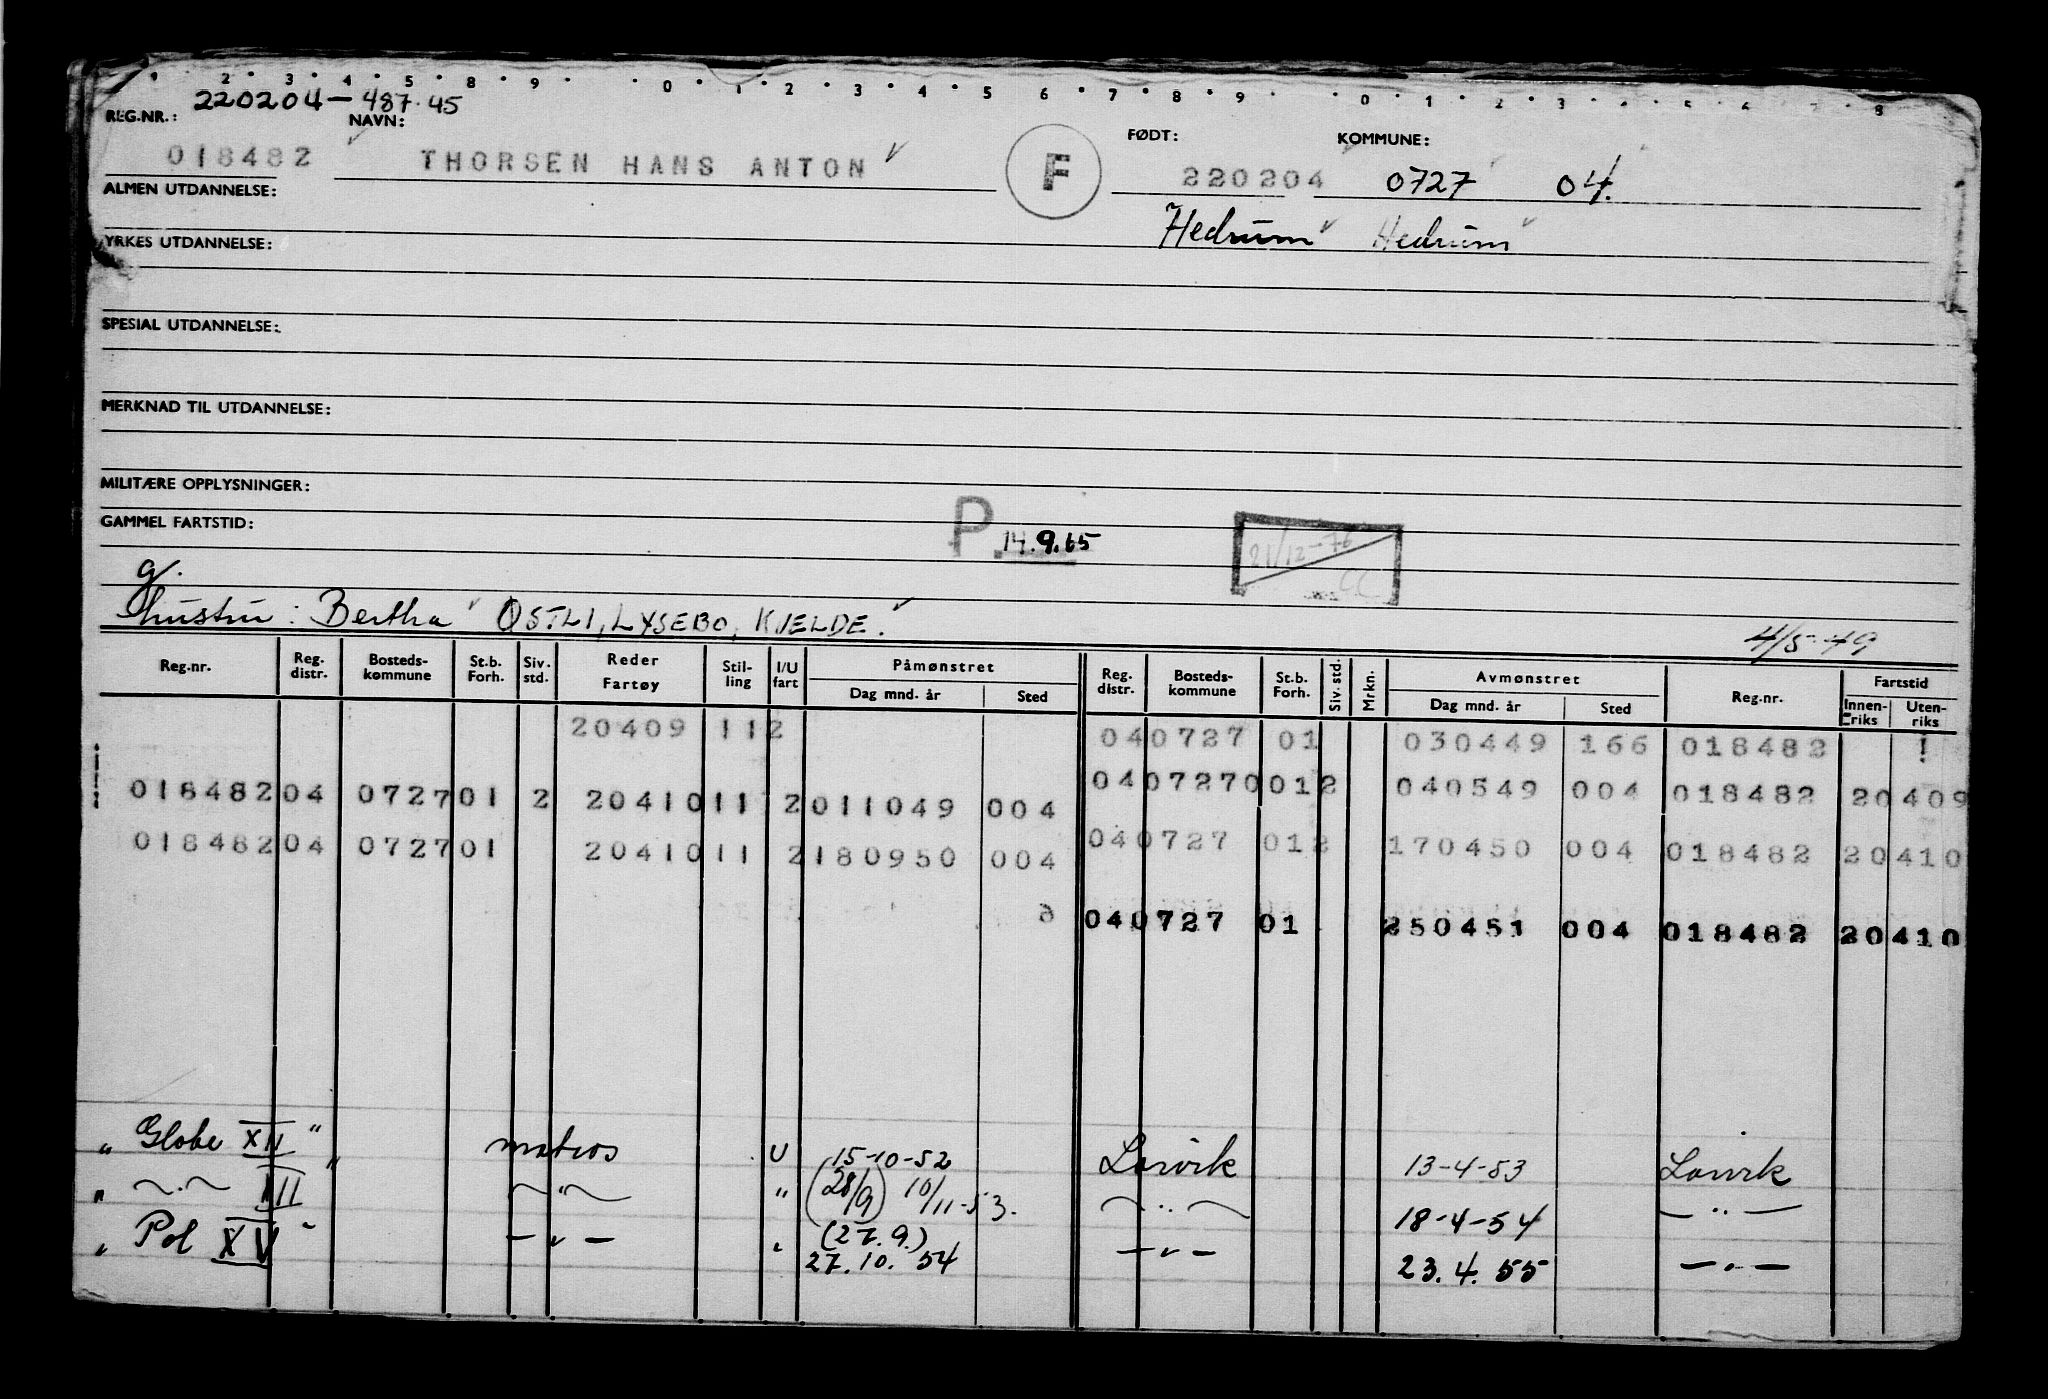 2 3 4 5 8 9 0 1 2 3 4 5 6 7 8 9 0 1 2 3 4 5 6 7 8
220204-487.45
REG.NR.: NAVN: FØDT: KOMMUNE:
018482 THORSEN HANS ANTON F 220204 0727 04.
ALMEN UTDANNELSE:
Hedrum Hedrum
YRKES UTDANNELSE:
SPESIAL UTDANNELSE:
MERKNAD TIL UTDANNELSE:
MILITÆRE OPPLYSNINGER:
GAMMEL FARTSTID:
P. 14.9.65
21/12-76
g.
hustru: Bertha ØSTLI, LYSEBO, KJELDE.
4/5-49
Reg.nr. Reg. distr. Bosteds-kommune St.b. Forh. Siv. std. Reder Fartøy Stil-ling I/U fart Påmønstret Dag mnd. år Sted Reg. distr. Bosteds-kommune St.b. Forh. Siv. std. Mrkn. Avmønstret Dag mnd. år Sted Reg.nr. Fartstid Innen-riks Uten-riks
20409 112 040727 01 030449 166 018482 !
018482 04 0727 01 2 20410 11 2 011049 004 040727 0012 040549 004 018482 20409
018482 04 0727 01 20410 11 2 180950 004 040727 012 170450 004 018482 20410
6 040727 01 250451 004 018482 20410
„ Globe XII " matros U 15-10-52 Larvik 13-4-53 Larvik
„ ~·~ III " ~"~ " (28/9) 10/11-53. ~··~ 18-4-54 —··—
„ Pol XV " —"— " (27.9.) 27.10.54 —"— 23.4.55 —"—